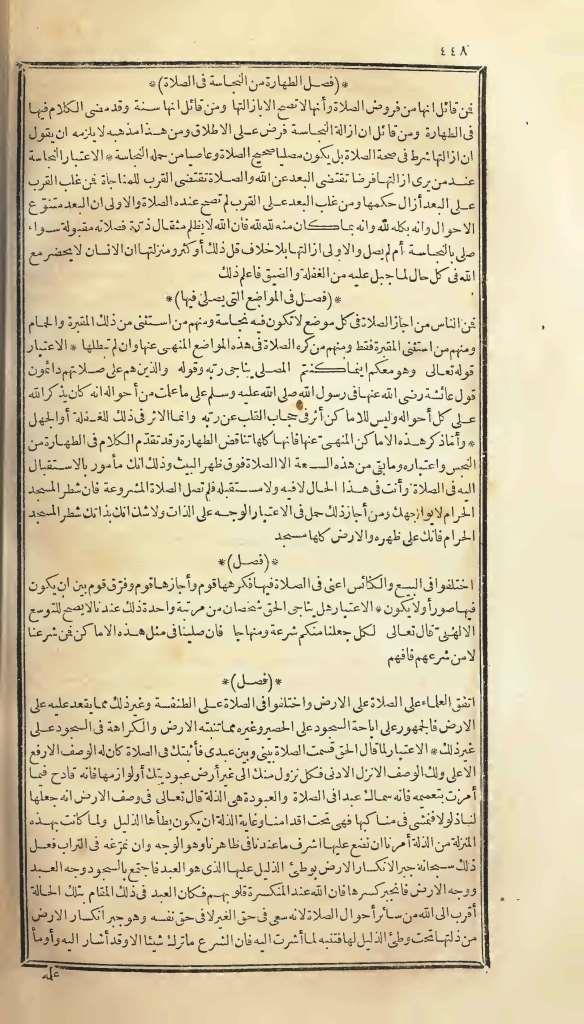 ٤٤٨
*(فصل الطهارة من النجاسة فى الصلاة)*
فمن قائل انها من فروض الصلاة وأنها لا تصح الا بازالتها ومن قائل انها سنة وقد مضى الكلام فيها
فى الطهارة ومن قائل ان ازالة النجاسة فرض على الاطلاق ومن هذا مذهبه لا يلزمه ان يقول
ان ازالتها شرط فى صحة الصلاة بل يكون مصليا صحيح الصلاة وعاصيا من حمله النجاسة * الاعتبار النجاسة
عند من يرى ازالتها فرضا تقتضى البعد عن الله والصلاة تقتضى القرب للمناجاة فمن غلب القرب
على البعد أزال حكمها ومن غلب البعد على القرب لم تصح عنده الصلاة والاولى ان البعد متنوع
الاحوال وانه بكله لله وانه بما كان منه لله لله فان الله لا يظلم مثقال ذرة فصلاته مقبولة سواء
صلى بالنجاسة أم لم يصل والاولى ازالتها بلا خلاف قل ذلك أو كثر ومنزلتها ان الانسان لا يحضر مع
الله فى كل حال لما جبل عليه من الغفلة والضيق فاعلم ذلك
*(فصل فى المواضع التى يصلى فيها)*
فمن الناس من اجاز الصلاة فى كل موضع لا تكون فيه نجاسة ومنهم من استثنى من ذلك المقبرة والحمام
ومنهم من استثنى المقبرة فقط ومنهم من كره الصلاة فى هذه المواضع المنهى عنها وان لم تبطلها * الاعتبار
قوله تعالى وهو معكم اينما كنتم المصلى يناجى ربه وقوله والذين هم على صلاتهم دائمون
قول عائشة رضى الله عنها فى رسول الله صلى الله عليه وسلم على ما علمت من أحواله انه كان يذكر الله
على كل أحواله وليس للاماكن أثر فى حجاب القلب عن ربه وانما الاثر فى ذلك للغفلة أو الجهل
* وأما ذكر هذه الاماكن المنهى عنها فانها كلها تناقض الطهارة وقد تقدم الكلام فى الطهارة من
النجس واعتباره وما بقى من هذه السبعة الا الصلاة فوق ظهر البيت وذلك انك مأمور بالاستقبال
اليه فى الصلاة وأنت فى هذا الحال لا فيه ولا مستقبله فلم تصل الصلاة المشروعة فان شطر المسجد
الحرام لا يواجهك ومن أجاز ذلك حمل فى الاعتبار الوجه على الذات ولا شك انك بذاتك شطر المسجد
الحرام فانك على ظهره والارض كلها مسجد
*(فصل)*
اختلفوا فى البيع والكنائس اعنى فى الصلاة فيها فكرهها قوم وأجازها قوم وفرق قوم بين ان يكون
فيها صور أو لا يكون * الاعتبار هل يناجى الحق شخصان من مرتبة واحدة ذلك عندنا لا يصح للتوسع
الالهى قال تعالى لكل جعلنا منكم شرعة ومنهاجا فان صلينا فى مثل هذه الاماكن فمن شرعنا
لا من شرعهم فافهم
*(فصل)*
اتفق العلماء على الصلاة على الارض واختلفوا فى الصلاة على الطنفسة وغير ذلك مما يقعد عليه على
الارض فالجمهور على اباحة السجود على الحصر وغيره مما تنبته الارض والكراهة فى السجود على
غير ذلك * الاعتبار لما قال الحق قسمت الصلاة بينى وبين عبدى فأثبتك فى الصلاة كان له الوصف الارفع
الاعلى ولك الوصف الانزل الادنى فكل نزول منك الى غير أرض عبوديتك أو لوازمها فانه قادح فيما
أمرت بتعميمه فانه سماك عبدا فى الصلاة والعبودة هى الذلة قال تعالى فى وصف الارض انه جعلها
لنا ذلولا فنمشى فى مناكبها فهى تحت اقدامنا وغاية الذلة ان يكون يطأها الذليل ولما كانت بهذه
المنزلة من الذلة أمرنا ان نضع عليها اشرف ما عندنا فى ظاهرنا وهو الوجه وان نمرغه فى التراب فعل
ذلك سبحانه جبرا لانكسار الارض بوطئ الذليل عليها الذى هو العبد فاجتمع بالسجود وجه العبد
ووجه الارض فانجبر كسرها فان الله عند المنكسرة قلوبهم فكان العبد فى ذلك المقام بتلك الحالة
أقرب الى الله من سائر أحوال الصلاة لانه سعى فى حق الغير لا فى حق نفسه وهو جبر انكسار الارض
من ذلتها تحت وطئ الذليل لها فتنبه لما أشرت اليه فان الشرع ما ترك شيئا الا وقد أشار اليه وأومأ